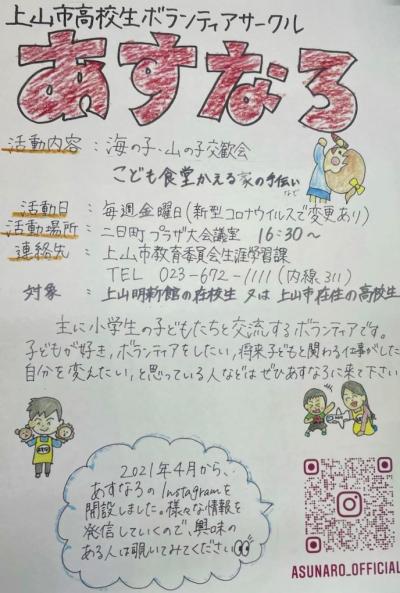 上山市高校生ボランティアサークル
あすなろ
活動内容 : 海の子、山の子交歓会
こども食堂かえる家の手伝いなど
活動日 : 毎週金曜日(新型コロナウイルスで変更あり)
活動場所 : 二日町プラザ大会議室 16:30〜
連絡先 : 上山市教育委員会生涯学習課
TEL 023-672-1111(内線311)
対象 : 上山明新館の在校生 又は 上山市在住の高校生
主に小学生の子どもたちと交流するボランティアです。
子どもが好き,ボランティアをしたい,将来子どもと関わる仕事がした
自分を変えたい,と思っている人などはぜひあすなろに来て下さい
2021年4月から、
あすなろのInstagramを
開設しました。様々な情報を
発信していくので、興味の
ある人は覗いてみてください
ASUNARO_OFFICIAL